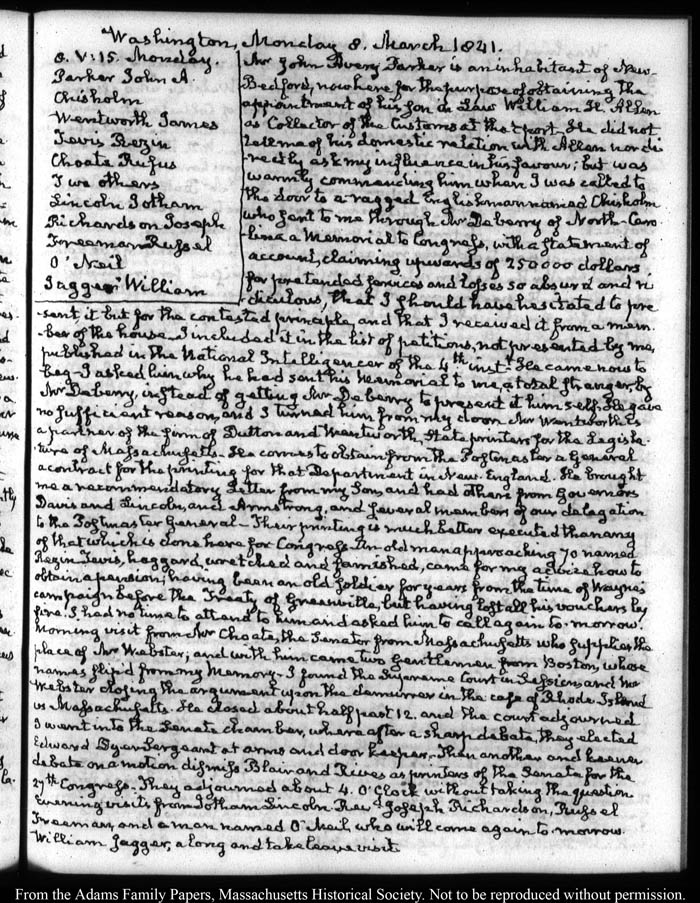 Washington, Monday 8. March 1841.
8. V:15. Monday.
Parker John A.
Chisholm
Wentworth James
Tevis Rezin
Choate Rufus
Two others
Lincoln Jotham
Richardson Joseph
Freeman Russel
O'Neil
Jagger William
Mr John Avery Parker is an inhabitant of New-
Bedford, now here for the purpose of obtaining the
appointment of his Son in Law William H. Allen
as Collector of the Customs at that port. He did not
tell me of his domestic relation with Allen nor di-
rectly ask my influence in his favour; but was
warmly commending him when I was called to
the door to a ragged Englishman named Chisholm
who sent to me through Mr Deberry of North-Caro-
lina a Memorial to Congress, with a statement of
account, claiming upwards of 250000 dollars
for pretended services and losses so absurd and ri-
diculous, that I should have hesitated to pre
-sent it but for the contested principle, and that I received it from a mem-
ber of the house. I included it in the list of petitions, not presented by me,
published in the National Intelligencer of the 4th inst. He came now to
beg— I asked him why he had sent his Memorial to me, a total stranger, by
Mr Deberry, instead of getting Mr Deberry to present it himself. He gave
no sufficient reason, and I turned him from my door. Mr Wentworth is
a partner of the firm of Dutton and Wentworth, State printers for the Legisla-
ture of Massachusetts. He comes to obtain from the Postmaster General
a contract for the printing for that Department in New England. He brought
me a recommendatory Letter from my Son, and had others from Governors
Davis and Lincoln, and Armstrong, and several members of our delegation
to the Postmaster General— Their printing is much better executed than any
of that which is done here for Congress. An old man approaching 70 named
Rezin Tevis, haggard, wretched and famished, came for my advice how to
obtain a pension; having been an old Soldier for years from the time of Wayne's
campaign before the Treaty of Greenville, but having lost all his vouchers by
fire. I had no time to attend to him and asked him to call again to-morrow.
Morning visit from Mr Choate, the Senator from Massachusetts who supplies the
place of Mr Webster; and with him came two Gentlemen from Boston, whose
names slip'd from my Memory— I found the Supreme Court in Session, and Mr
Webster closing the argument upon the demurrer in the case of Rhode-Island
vs Massachusetts. He closed about half past 12. and the court adjourned
I went into the Senate chamber, where after a sharp debate, they elected
Edward Dyer Sergeant at arms and door keeper— Then another and keener
debate on a motion dismiss Blair and Rives as printers of the Senate for the
27th Congress. They adjourned about 4. O'Clock without taking the question
Evening visits from Jotham Lincoln. Revd Joseph Richardson, Russel
Freeman, and a man named O'Neil, who will come again to-morrow.
William Jagger, a long and take leave visit
From the Adams Family Papers, Massachusetts Historical Society. Not to be reproduced without permission.